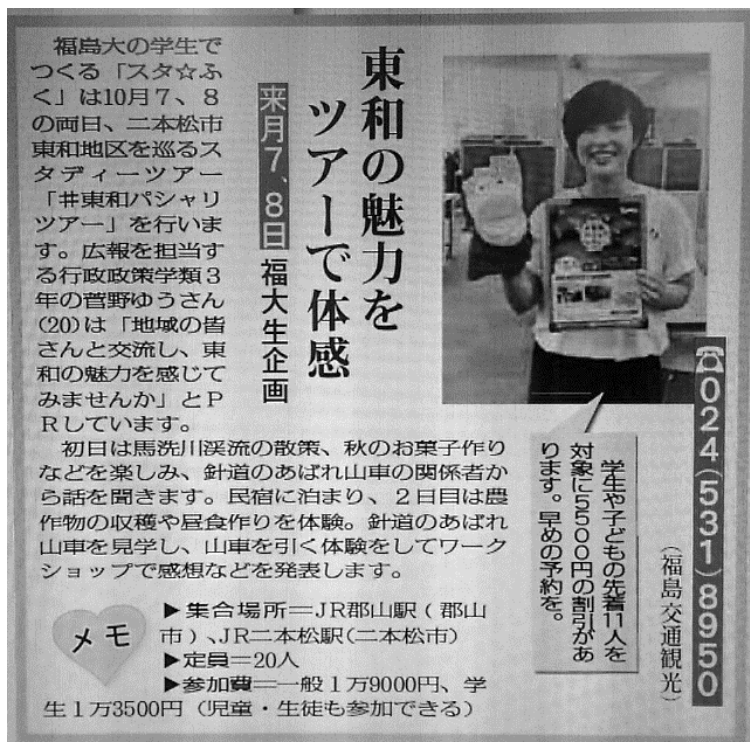 東和の魅力を
ツアーで体感
来月7、8日 福大生企画
福島大の学生で
つくる「スタ☆ふ
く」は10月7、8
の両日、二本松市
東和地区を巡るス
タディーツアー
「#東和パシャリ
ツアー」を行いま
す。広報を担当す
る行政政策学類3
年の菅野ゆうさん
(20)は「地域の皆
さんと交流し、東
和の魅力を感じて
みませんか」とP
Rしています。
初日は馬洗川渓流の散策、秋のお菓子作り
などを楽しみ、針道のあばれ山車の関係者か
ら話を聞きます。民宿に泊まり、2日目は農
作物の収穫や昼食作りを体験。針道のあばれ
山車を見学し、山車を引く体験をしてワーク
ショップで感想などを発表します。
メモ
▶集合場所=JR郡山駅(郡山
市)、JR二本松駅(二本松市)
▶定員=20人
▶参加費=一般1万9000円、学
生1万3500円(児童・生徒も参加できる)
学生や子どもの先着11人を
対象に5500円の割引があ
ります。早めの予約を。
☎024(531)8950
(福島交通観光)